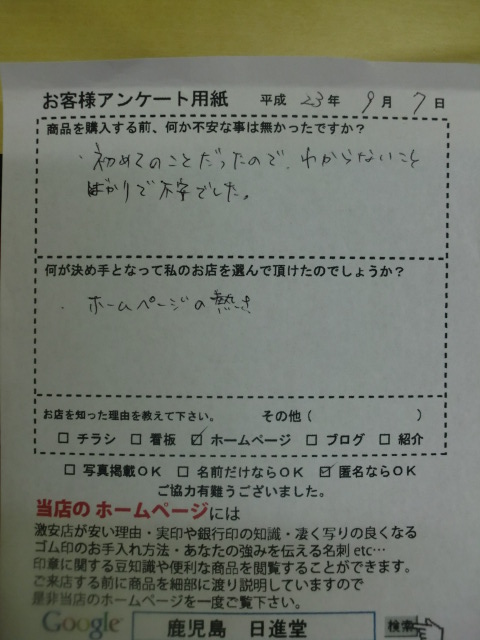 お客様アンケート用紙 平成 23年 9月 7日
商品を購入する前、何か不安な事は無かったですか？
・初めてのことだったので、わからないこと
ばかりで不安でした。
何が決め手となって私のお店を選んで頂けたのでしょうか？
・ホームページの熱さ
お店を知った理由を教えて下さい。 その他（ ）
□ チラシ □ 看板 ☑ ホームページ □ ブログ □ 紹介
□ 写真掲載ＯＫ □ 名前だけならＯＫ ☑ 匿名ならＯＫ
ご協力有難うございました。
当店の ホームページには
激安店が安い理由・実印や銀行印の知識・凄く写りの良くなる
ゴム印のお手入れ方法・あなたの強みを伝える名刺 etc…
印章に関する豆知識や便利な商品を閲覧することができます。
ご来店する前に商品を細部に渡り説明していますので
是非当店のホームページを一度ご覧下さい。
Google 鹿児島 日進堂 検索